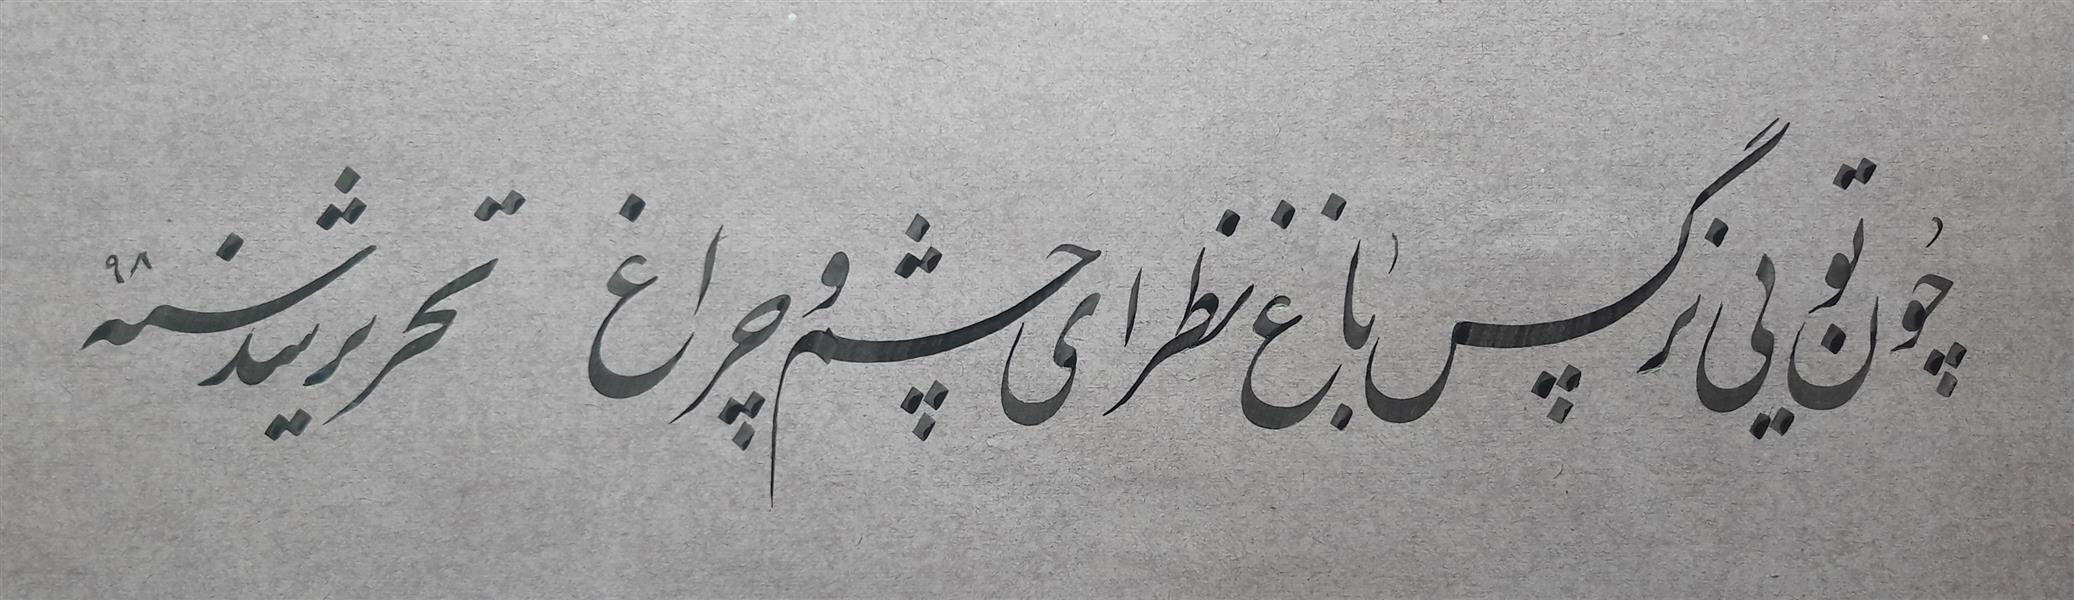 چُون تویی نرگس باغ نظر ای چشم و چراغ تحریر شد سنه ۹۸